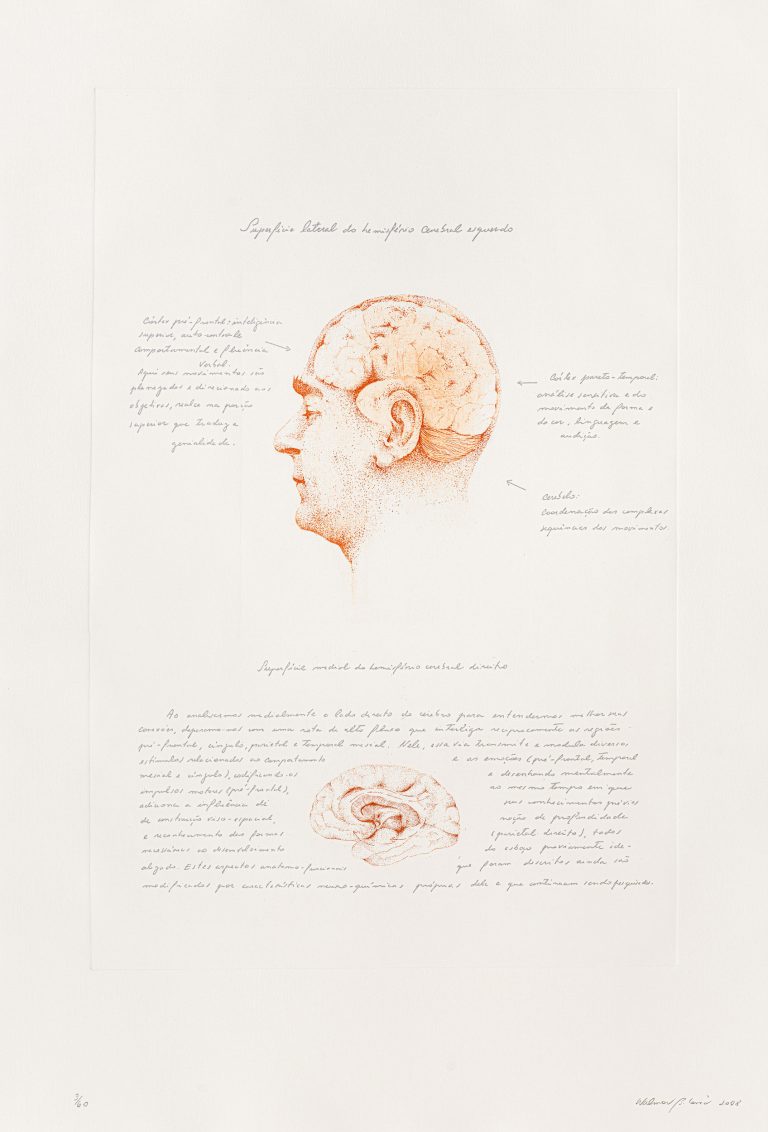 Superfície lateral do hemisfério cerebral esquerdo
Córtex pré-frontal: inteligência
superior, auto-controle
comportamental e fluência
verbal.
Aqui seus movimentos são
planejados e direcionado aos
objetivos, realce na porção
superior que traduz a
genialidade.
Córtex parieto-temporal:
análise sensitiva e do
movimento da forma e
da cor, linguagem e
audição.
Cerebelo:
Coordenação das complexas
sequências dos movimentos.
Superfície medial do hemisfério cerebral direito
Ao analisarmos medialmente o lado direito do cérebro para entendermos melhor suas
conexões, deparamo-nos com uma rota de alto fluxo que interliga reciprocamente as regiões
pré-frontal, cíngulo, parietal e temporal mesial. Nele, essa via transmite e modula diversos
estímulos relacionados ao comportamento e as emoções (pré-frontal, temporal
mesial e cíngulo), codificando os e desenhando mentalmente
impulsos motores (pré-frontal), ao mesmo tempo em que
adiciona a influência de seus conhecimentos prévios
de construção viso-espacial, noção de profundidade
e reconhecimento das formas (parietal direito), todos
necessários ao desenvolvimento do esboço previamente ide-
alizado. Estes aspectos anatomo-funcionais que foram descritos ainda são
modificados por características neuro-químicas próprias dele e que continuam sendo pesquisadas.
3/60
2008